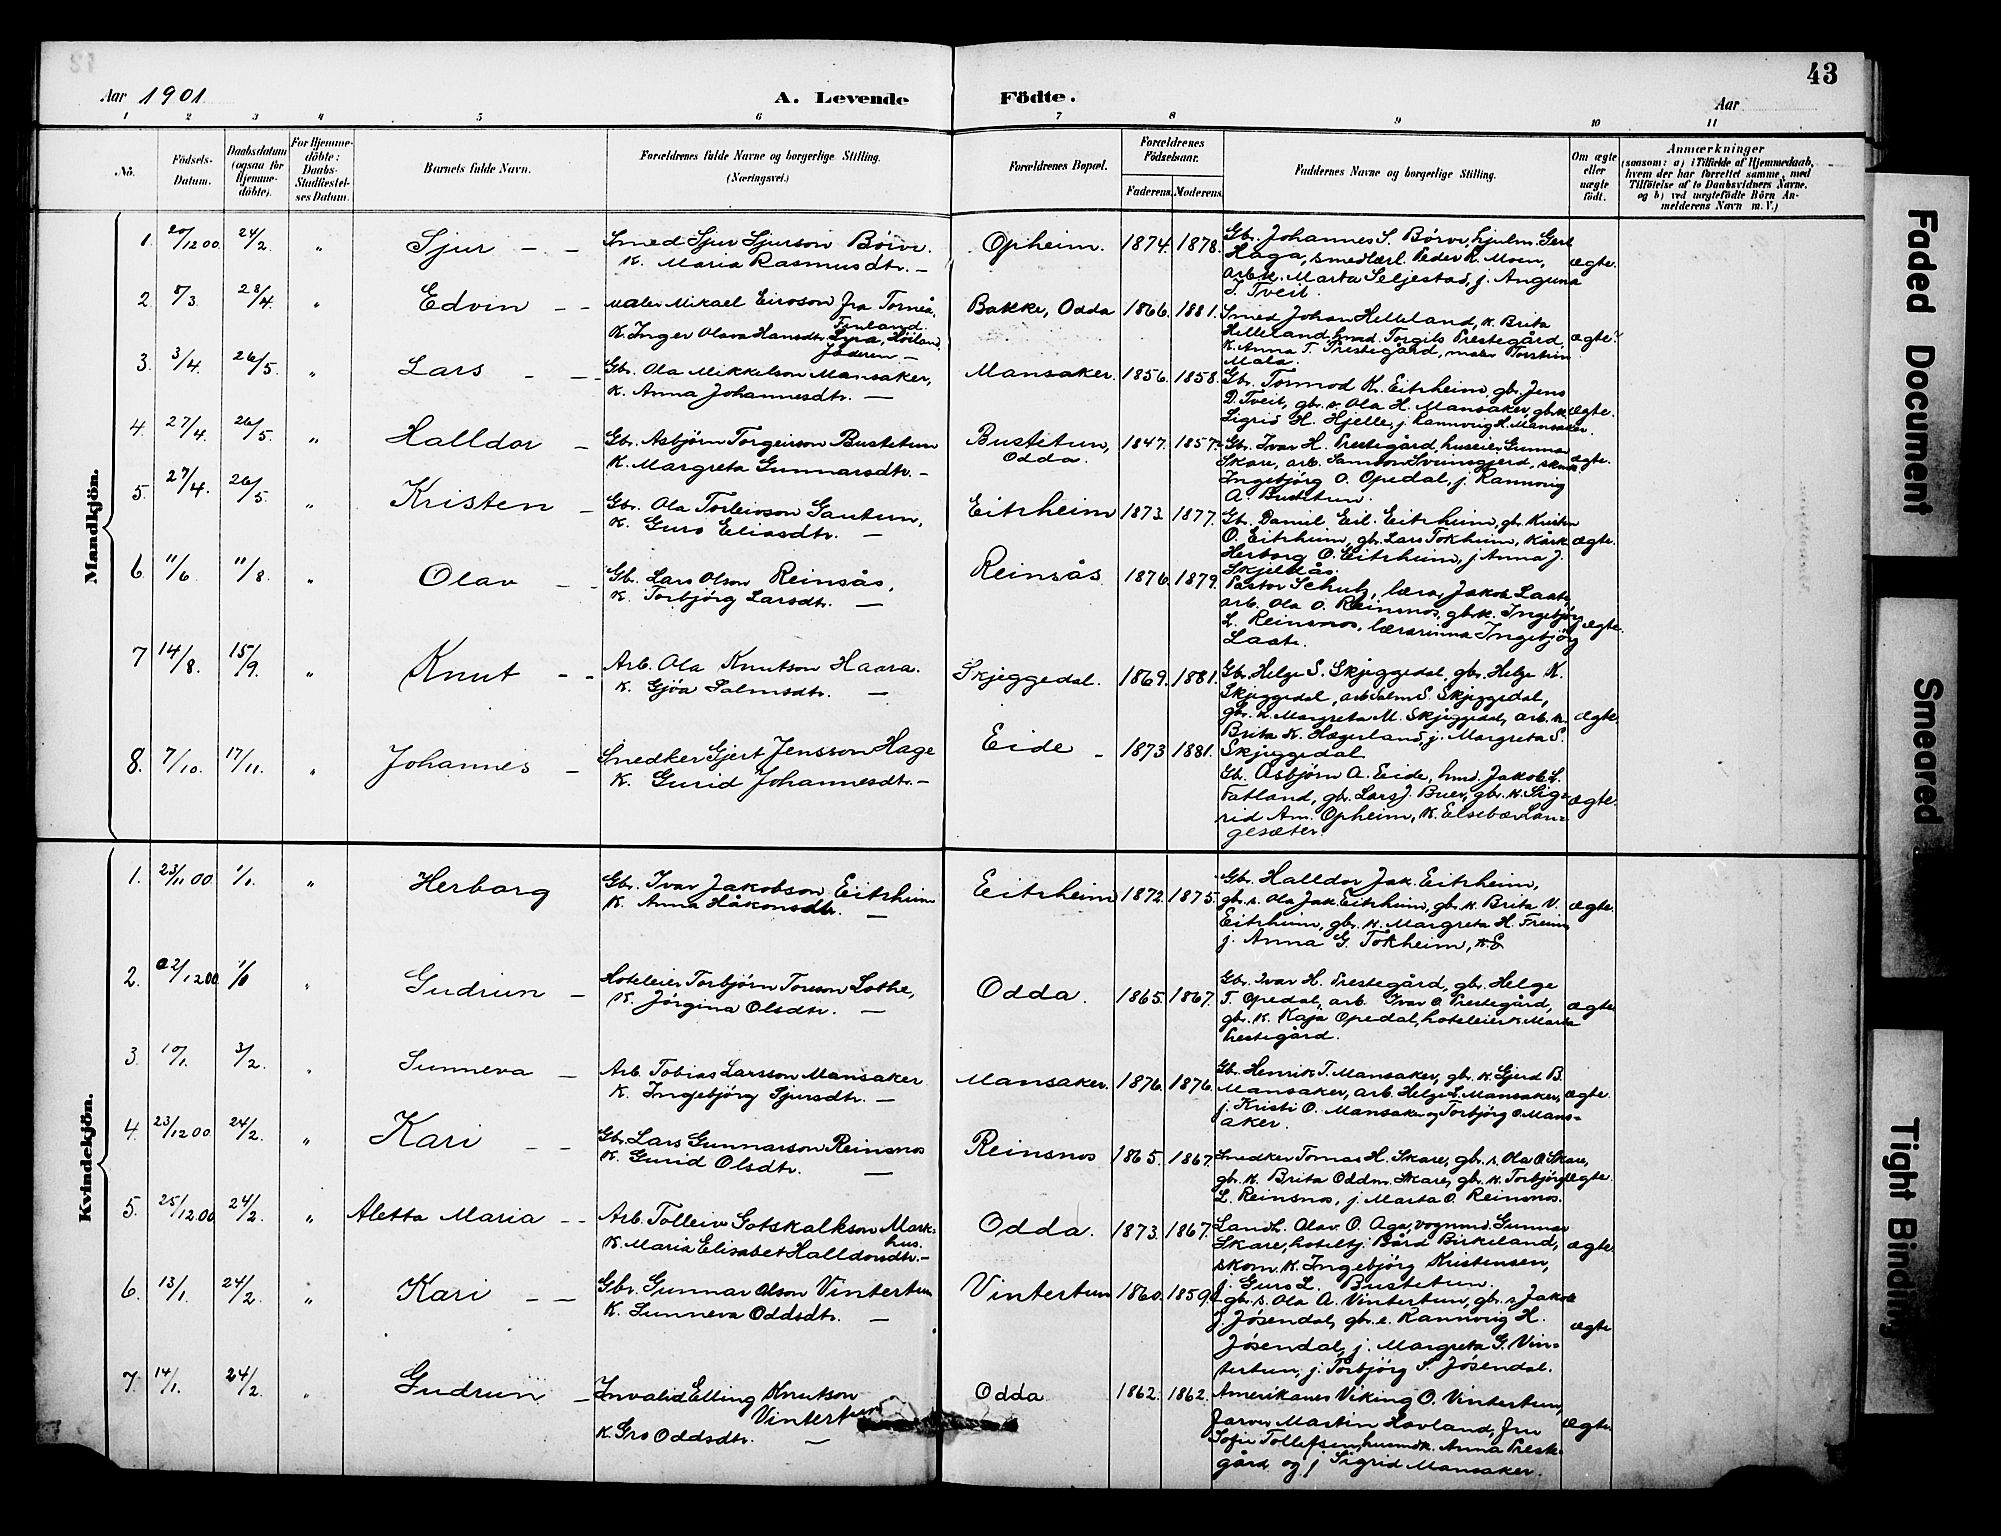 43
Aar 1901
A. Levende Födte.
Aar
1 2 3 4 5 6 7 8 9 10 11
No.
Födsels-Datum.
Daabsdatum (ogsaa for Hjemme-döbte).
For Hjemme-döbte: Daabs-Stadfæstel-ses Datum.
Barnets fulde Navn.
Forældrenes fulde Navne og borgerlige Stilling. (Næringsvei.)
Forældrenes Bopæl.
Forældrenes Födselsaar.
Faderens. Moderens.
Faddernes Navne og borgerlige Stilling.
Om ægte eller uægte födt.
Anmærkninger
(saasom: a) i Tilfælde af Hjemmedaab, hvem der har forrettet samme, med Tilföielse af to Daabsvidners Navne, og b) ved uægtefödte Börn An-melderens Navn m. V.)
Mandkjön.
1. 24/2. " Sjur - - Smed Sjur Sjurson Börve. K. Maria Rasmusdtr. - Opheim. 1874. 1878. Gbr. Johannes S. Börve, hjulm. Gert Haga, smedlærl. Peder K. Moen, arbk. Marta Seljestad, j. Anguna T. Tveit. ægte.
2. 8/3. 28/4. " Edvin - - Maler Mikael Eirosson fra Torneå, Finland. K. Inger Olava Hansdtr. Lyra, Höiland Jæderen - Bakke, Odda 1866. 1881. Smed Johan Helleland, K. Brita Helleland, smed Torgils Prestegård, K. Anna T. Prestegård, maler Torstein Mala. ægte.
3. 3/4. 26/5. " Lars - - Gbr. Ola Mikkelson Mansaker, K. Anna Johannesdtr. - Mansaker. 1856. 1858. Gbr. Tormod K. Eitrheim, gbr. Jens D. Tveit, gbr. s. Ola H. Mansaker, gbr. k. Sigrid H. Hjelle, j. Rannveig H. Mansaker. ægte.
4. 27/4. 26/5. " Halldor - Gbr. Asbjörn Torgeirson Bustetun K. Margreta Gunnarsdtr. - Bustetun, Odda. 1847. 1857. Gbr. Ivar H. Prestegård, huseier Gunnar Skare, arb. Samson Sveinsgjerd, Ingebjörg O. Opedal, j. Rannveig A. Bustetun. ægte.
5. 27/4. 26/5. " Kristen - Gbr. Ola Torleivson Gautun, K. Guro Eliasdtr. - Eitrheim 1873. 1877. Gbr. Daniel Eil. Eitrheim, gbr. Kristen O. Eitrheim, gbr. Lars Tokheim, Herborg O. Eitrheim, j. Anna J. Skjeldås. ægte.
6. 11/6. 11/8. " Olav - - Gbr. Lars Olson Reinsås, K. Torbjörg Larsdtr. - Reinsås 1876. 1879. Pastor Schulz, lærer Jakob Laate, arb. Ola O. Reinsnos, gbr. k. Ingebjörg L. Reinsnos, lærerinna Ingebjörg Laate. ægte.
7 14/8. 15/9. " Knut - - Arb. Ola Knutson Haara. K. Gjöa Salmsdtr. - Skjeggedal. 1869. 1881. Gbr. Helge S. Skjeggedal, gbr. Helge K. Skjeggedal, arb. Salm S. Skjeggedal, gbr. k. Margreta M. Skjeggedal, arb. k. Brita K. Hægerland, j. Margreta S. Skjeggedal ægte
8. 7/10. 17/11. " Johannes - Snedker Gjert Jensson Hage K. Gurid Johannesdtr. - Eide - 1873 1881. Gbr. Asbjörn A. Eide, hmd. Jakob L. Fatland, gbr. Lars J. Buer, gbr. K. Sig-rid Am. Opheim, K. Elsebæ Lan-gesæter. ægte.
Kvindekjön.
1. 23/11 00 1/1. " Herborg Gbr. Ivar Jakobson Eitrheim K. Anna Håkonsdtr. - Eitrheim 1872. 1875. Gbr. Halldor Jak. Eitrheim, gbr. s. Ola Jak. Eitrheim, gbr. k. Brita V. Eitrheim, gbr. k. Margreta H. Freim j. Anna G. Tokheim, ægte
2. Gudrun - Hoteleier Torbjörn Torson Lothe, K. Jörgina Olsdtr. - Odda. 1865. 1867. Gbr. Ivar H. Prestegård, gbr. Helge T. Opedal, arb. Ivar O. Prestegård, gbr. K. Kaja Opedal, hoteleier k. Marta Prestegård. ægte
3. 10/1. 3/2. Sunneva - Arb. Tobias Larsson Mansaker K. Ingebjörg Sjursdtr. - Mansaker. 1876. 1876. Gbr. Henrik T. Mansaker, gbr. k. Gjerd B. Mansaker, arb. Helge L. Mansaker, j. Kristi O. Mansaker og Torbjörg O. Mans-aker. ægte.
4. 23/12 00 24/2. " Kari - - Gbr. Lars Gunnarson Reinsnos K. Gurid Olsdtr. - Reinsnos 1865. 1867. Snedker Tomas H. Skare, gbr. s. Ola O. Skare, gbr. k. Brita Oddm. Skare, gbr. k. Torbjörg L. Reinsnos, j. Marta O. Reinsnos. ægte.
5. 25/12 00 24/2. " Aletta Maria - - Arb. Tolleiv Gotskalkson Mark-hus. K. Maria Elisabet Halldorsdtr. - Odda. 1873. 1867. Landh. Olav O. Aga, vognmd. Gunnar Skare, hotelbj. Bård Birkeland, skom. k. Ingebjörg Kristensen, j. Guro L. Bustetun. ægte
6. 13/1. 24/2. " Kari - - Gbr. Gunnar Olson Vintertun K. Sunneva Oddsdtr. - Vintertun 1860. 1859. gbr. s. Ola A. Vintertun, gbr. s. Jakob J. Jösendal, gbr. e. Rannveig H. Jösendal, j. Margreta G. Vin-tertun, j. Torbjörg S. Jösendal. ægte
7. 14/1. 24/2. " Gudrun - Invalid Elling Knutson Vintertun K. Gro Oddsdtr. - Odda 1862. 1862. Amerikaner Viking O. Vintertun, farver Martin Hovland, fru Sofie Tollefsen, husmdk. Anna Preste-gård og j. Sigrid Mansaker. ægte
Faded Document
Smeared
Tight Binding